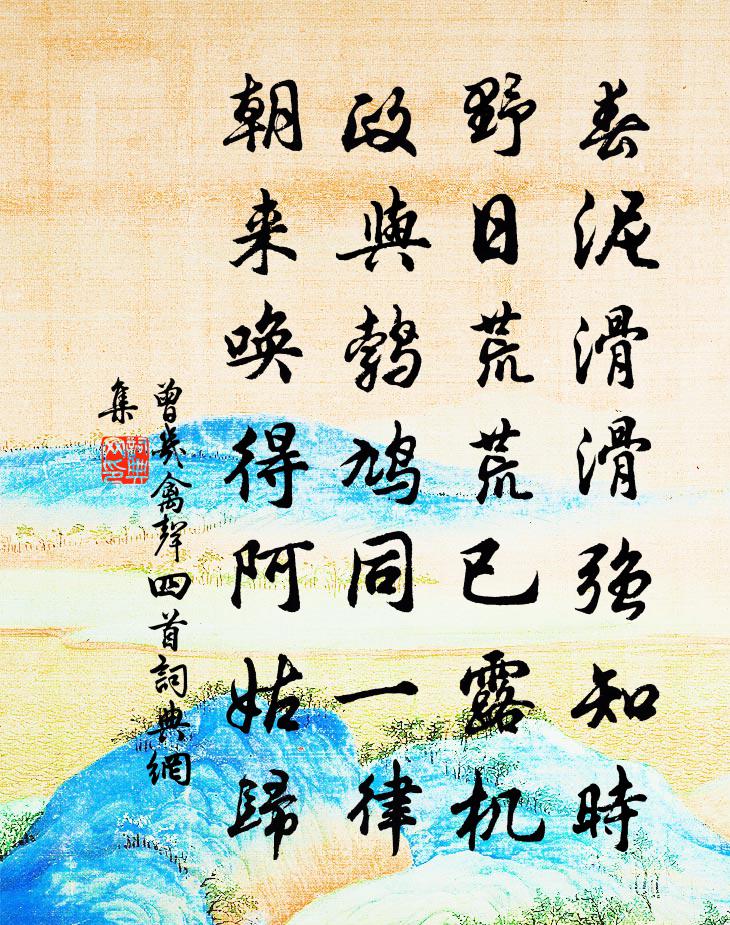 春泥滑滑強知時
野日荒荒已露机
政與鵓鳩同一律
朝来唤得阿姑歸
曾幾禽聲四首詞典網
集